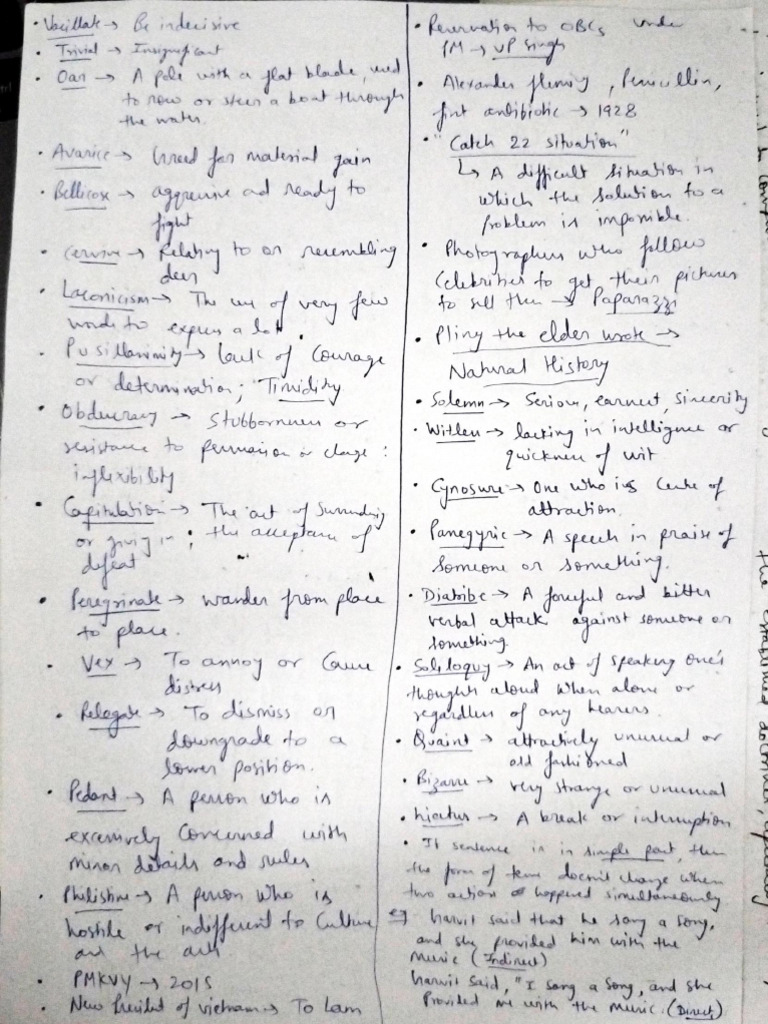 • Vacillate → Be indecisive
• Trivial → Insignificant
• Oar → A pole with a flat blade, used
to row or steer a boat through
the water.
• Avarice → Greed for material gain
• Bellicose → aggressive ad ready to
fight
• Cervine → Relating to or resembling
deer
• Laconicism → The use of very few
words to express a lot.
• Pusillanimity → lack of courage
or determination; Timidity
• Obduracy → Stubbornness or
resistance to persuasion or change :
inflexibility
• Capitulation → The act of surrending
or giving in ; the acceptance of
defeat
• Peregrinate → wander from place
to place.
• Vex → To annoy or cause
distress
• Relegate → To dismiss or
downgrade to a
lower position.
• Pedant → A person who is
excessively concerned with
minor details and rules
• Philistine → A person who is
hostile or indifferent to culture
and the arts.
• PMKVY → 2015
• New President of Vietnam → To Lam
• Reservation to OBCs under
PM → VP Singh
• Alexander fleming, Penicillin,
first antibiotic → 1928
• "Catch 22 situation"
↳ A difficult situation in
which the solution to a
problem is impossible.
• Photographers who follow
celebrities to get their pictures
to sell them → Paparazzi
• Pliny the elder wrote →
Natural History
• Solemn → Serious, earnest, sincerity
• Witless → lacking in intelligence or
quickness of wit
• Cynosure → One who is centre of
attraction.
• Panegyric → A speech in praise of
someone or something.
• Diatribe → A forceful and bitter
verbal attack against someone or
something
• Soliloquy → An act of speaking one's
thoughts aloud when alone or
regardless of any hearers.
• Quaint → attractively unusual or
old fashioned
• Bizarre → very strange or unusual
• hiatus → A break or interruption
• If sentence is in simple past, then
the form of tense doesn't change when
two action happened simultaneously
eg harvit said that he sang a song,
and she provided him with the
music (Indirect)
harvit said, "I sang a song, and she
provided me with the music. (Direct)